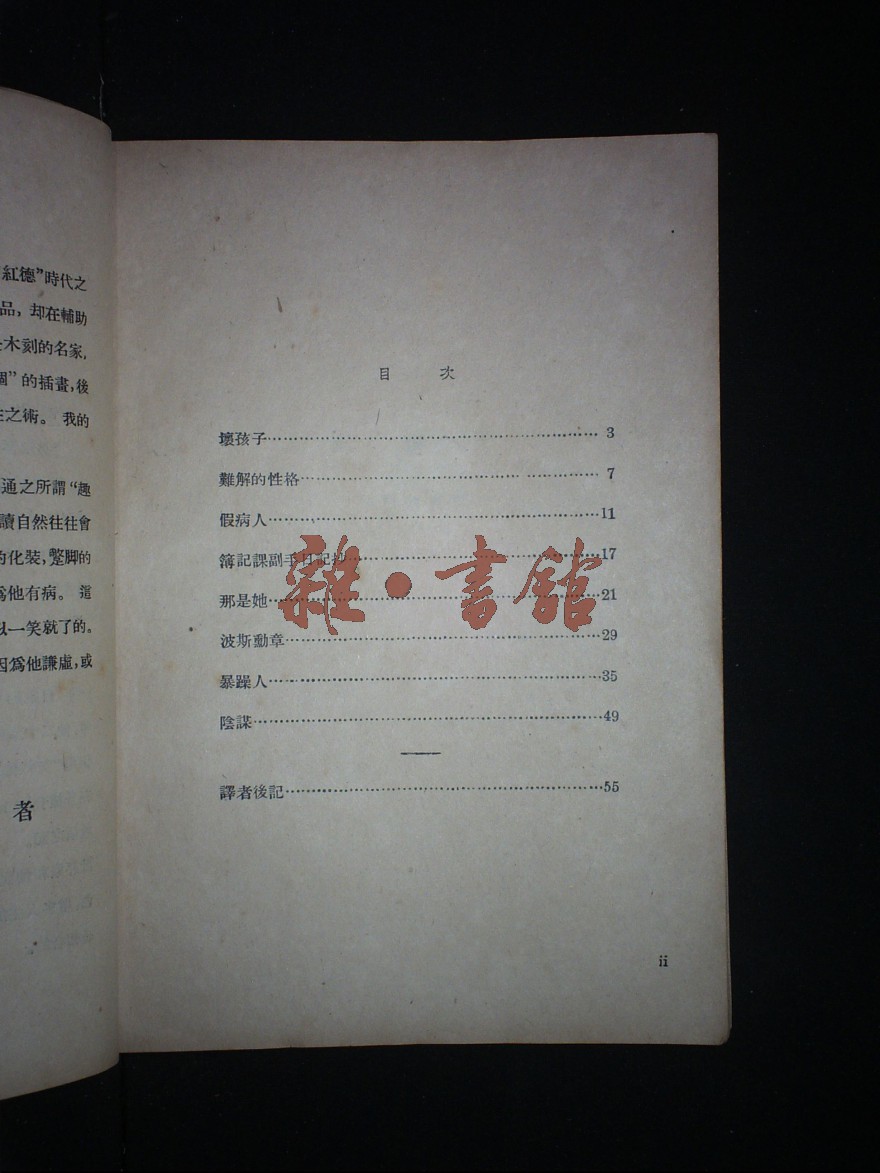 紅德”時代之
品，却在輔助
木刻的名家，
個”的插畫，後
之術。 我的
通之所謂“趣
讀自然往往會
的化裝，蹩脚的
爲他有病。 這
以一笑就了的。
因爲他謙虛，或
者
目 次
壞孩子 3
難解的性格 7
假病人 11
簿記課副手日記抄 17
那是她 21
波斯勳章 29
暴躁人 35
陰謀 49
譯者後記 55
ii
雜·書館